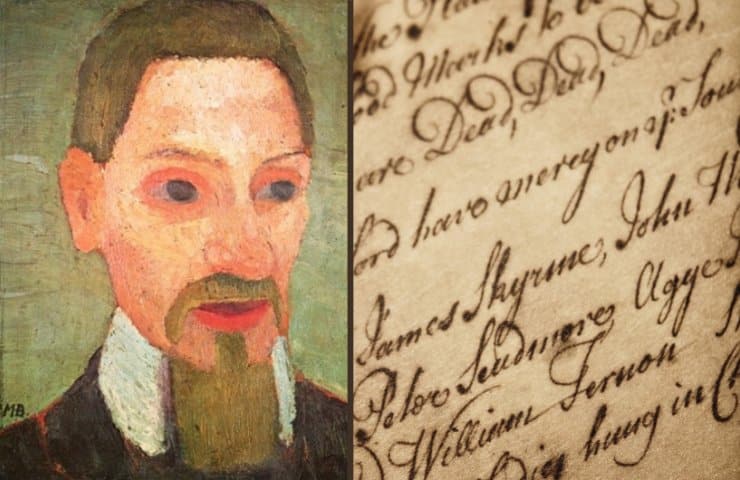 PMB.
the
Works to be
are Dead, Dead, Dead,
have mercy on yr: Sou
James Skyrme, John W
Peter Scudmore, Agge
William Fernon
hung in C